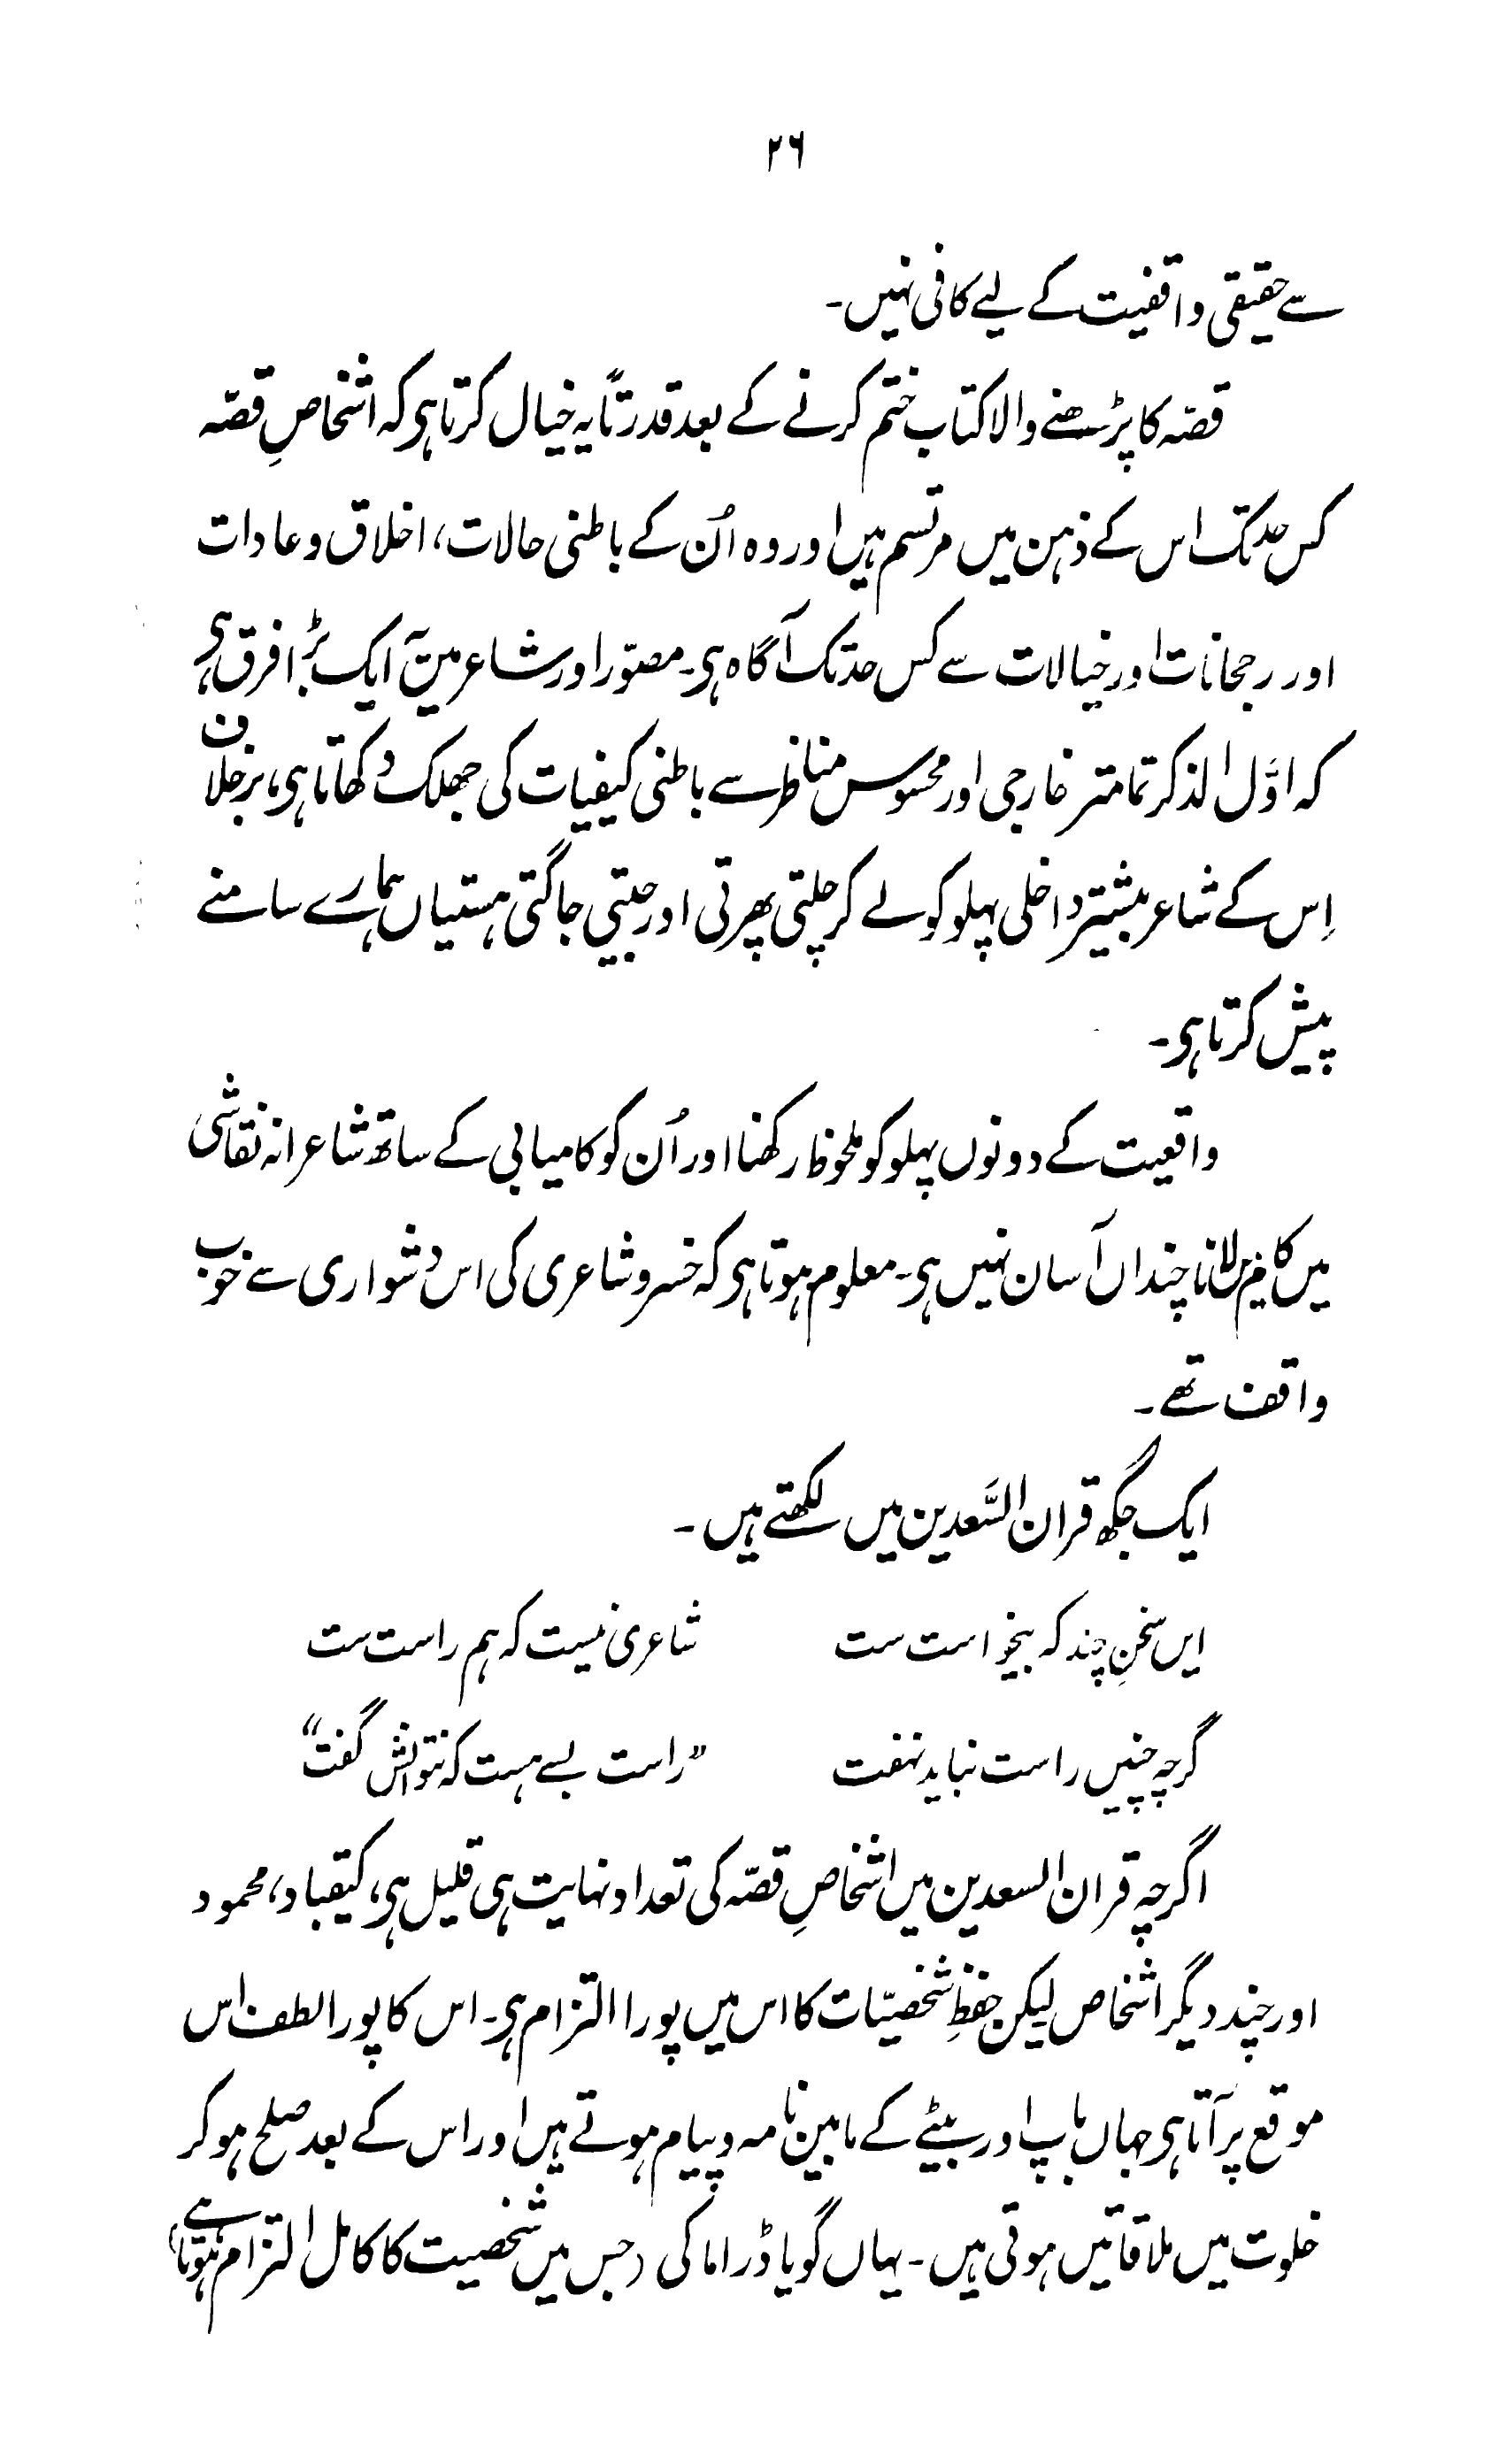 ۲۶
سے حقیقی واقفیت کے لیے کافی نہیں۔
قصّہ کا پڑھنے والا کتاب ختم کرنے کے بعد قدرتاً یہ خیال کرتا ہی کہ اشخاصِ قصّہ
کس حد تک اس کے ذہن میں مرتسم ہیں اور وہ اُن کے باطنی حالات، اخلاق و عادات
اور رجحانات اور خیالات سے کس حد تک آگاہ ہی۔ مصوّر اور شاعر میں ایک بڑا فرق ہی
کہ اوّل الذکر تمامتر خارجی اور محسوس مناظر سے باطنی کیفیات کی جھلک دکھاتا ہی، برخلاف
اِس کے شاعر بیشتر داخلی پہلو کو لے کر چلتی پھرتی اور جیتی جاگتی ہستیاں ہمارے سامنے
پیش کرتا ہی۔
واقعیت کے دونوں پہلو کو ملحوظ رکھنا اور اُن کو کامیابی کے ساتھ شاعرانہ نقاشی
میں کام میں لانا چنداں آسان نہیں ہی۔ معلوم ہوتا ہی کہ خسرو شاعری کی اس دشواری سے خوب
واقف تھے۔
ایک جگھ قران السَّعدین میں لکھتے ہیں۔
ایں سخنِ چند کہ بیخواست ست شاعری نیست کہ ہم راست ست
گرچہ چنیں راست نباید نہفت "راست بسے ہست کہ نتوانش گفت"
اگرچہ قران السعدین میں اشخاصِ قصّہ کی تعداد نہایت ہی قلیل ہی، کیقباد، محمود
اور چند دیگر اشخاص لیکن حفظِ شخصیّات کا اس میں پورا التزام ہی۔ اس کا پورا لطف اس
موقع پر آتا ہی جہاں باپ اور بیٹے کے مابین نامہ و پیام ہوتے ہیں اور اس کے بعد صلح ہو کر
خلوت میں ملاقاتیں ہوتی ہیں۔ یہاں گویا ڈراما کی (جس میں شخصیت کا کامل التزام ہوتا ہے)